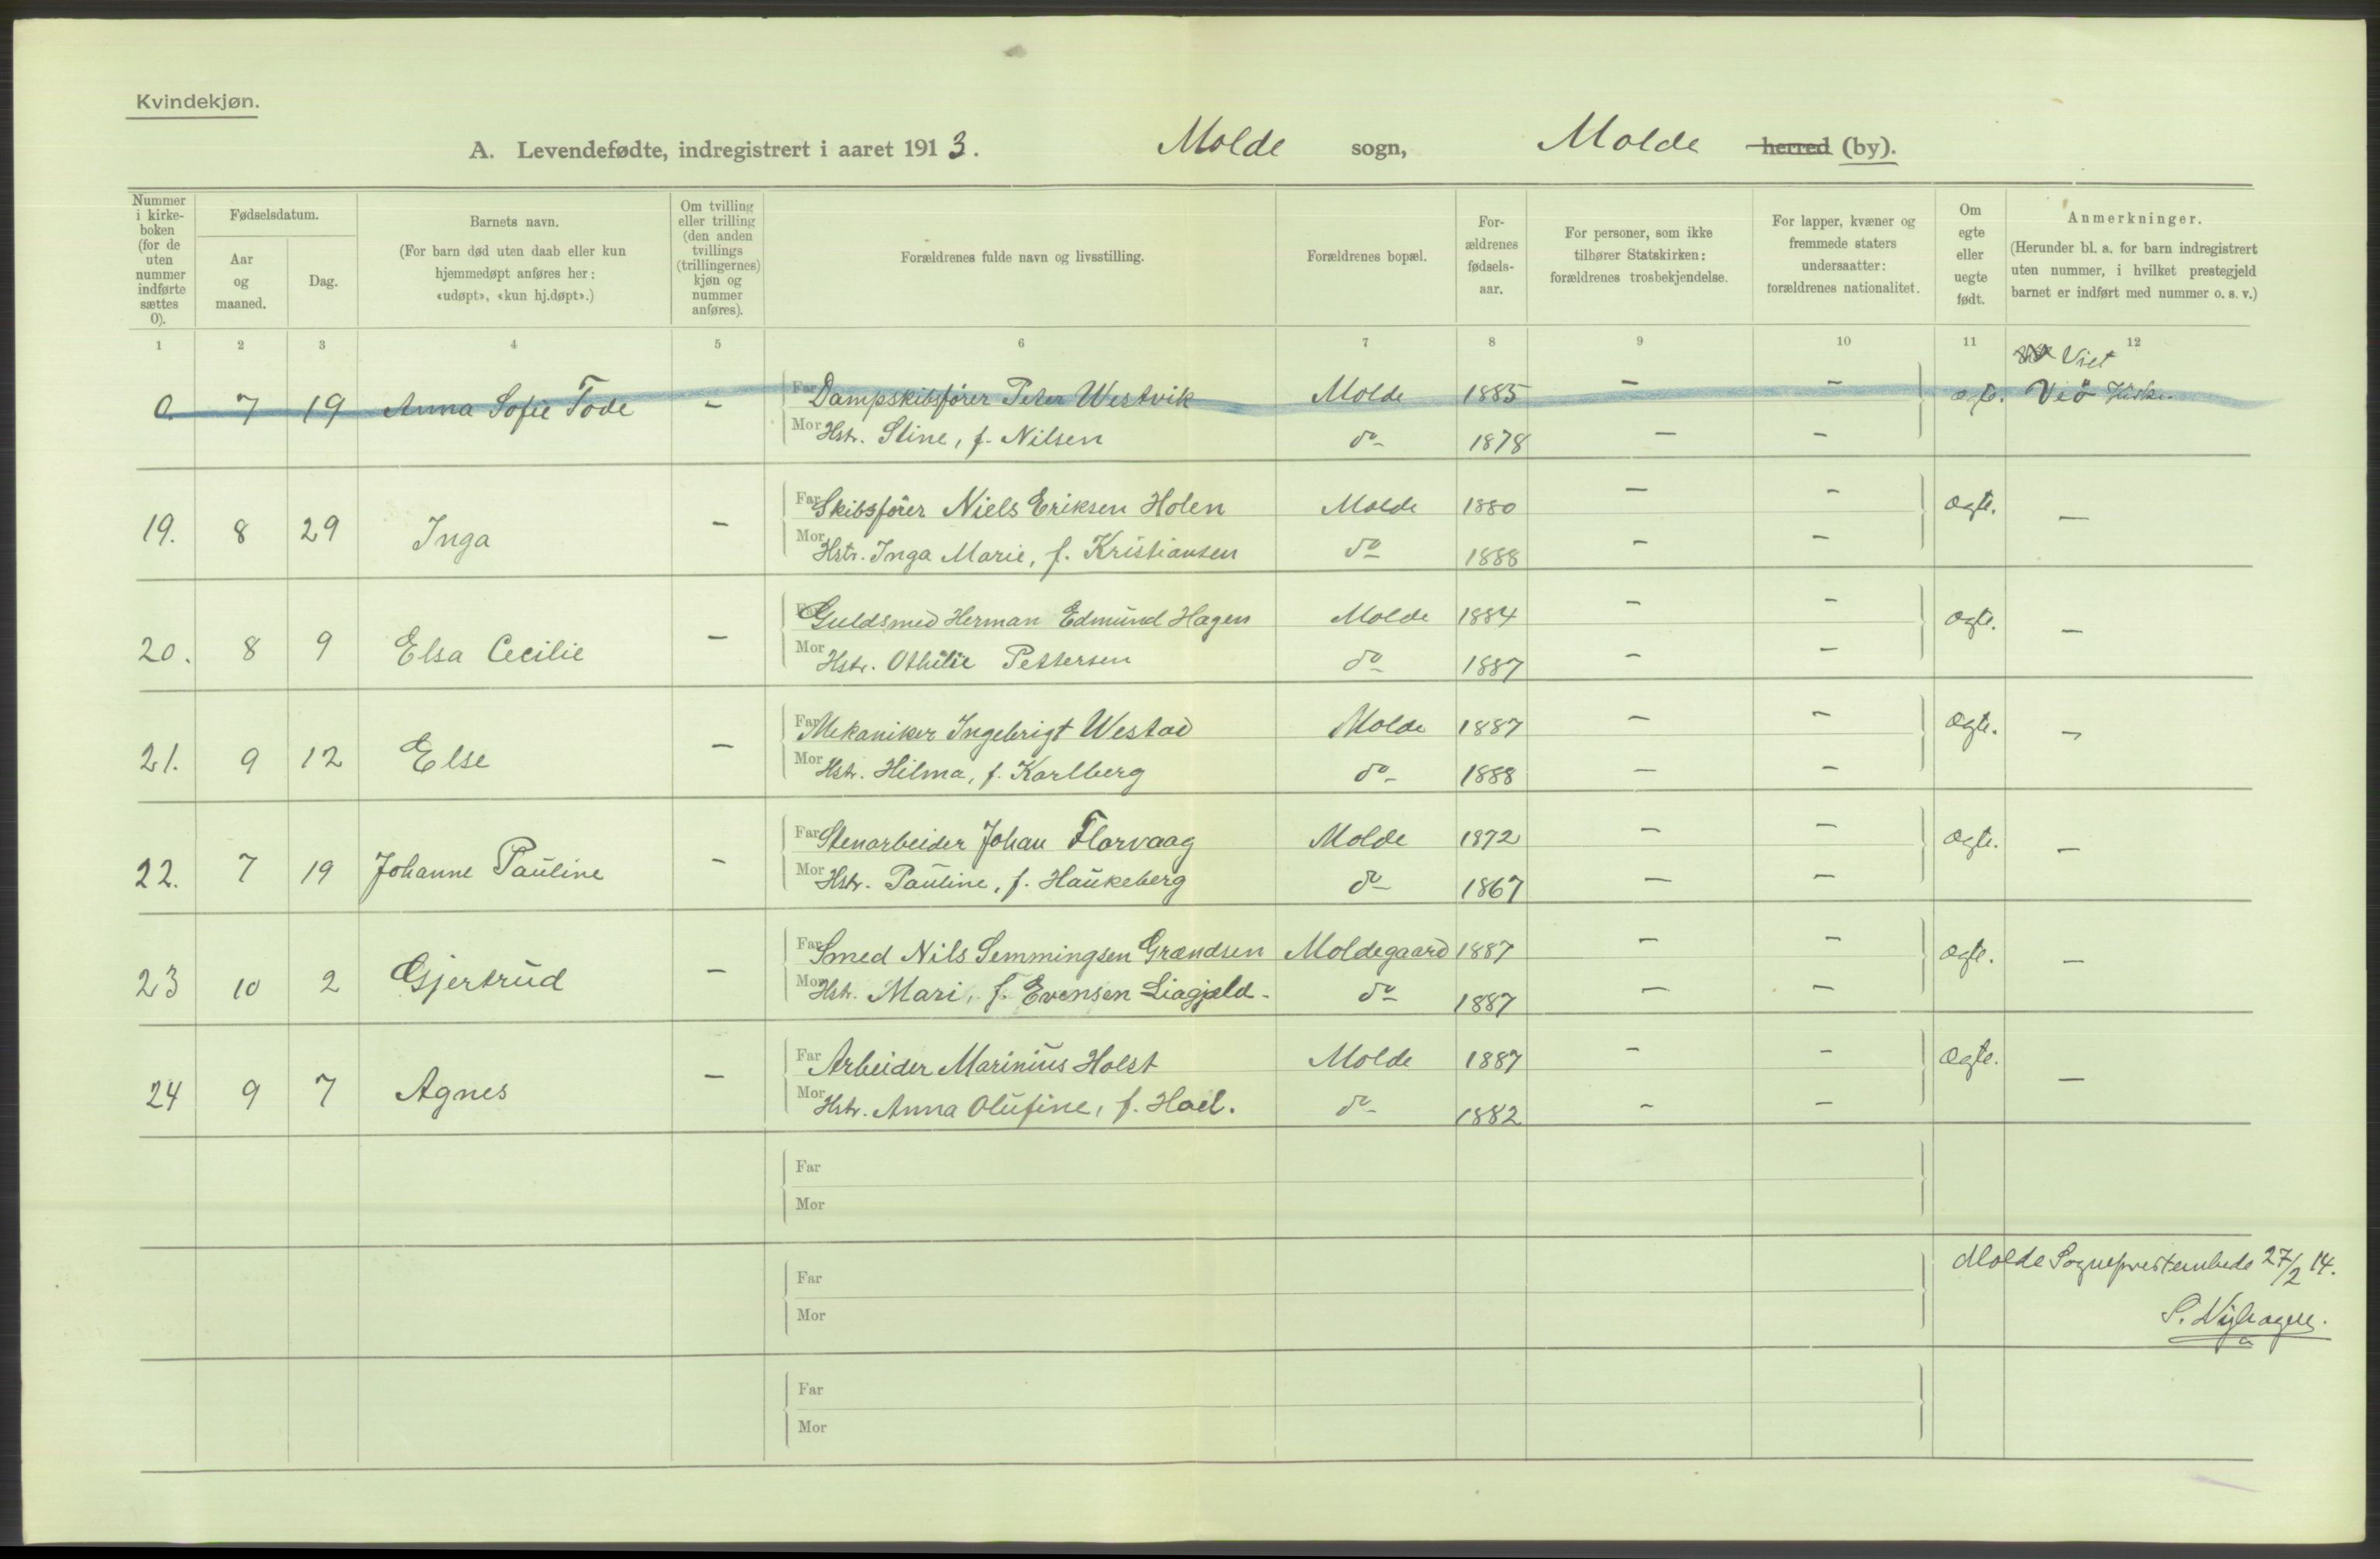 Kvindekjøn.
A. Levendefødte, indregistrert i aaret 1913. Molde sogn, Molde herred (by).
Nummer i kirkeboken (for de uten nummer indførte sættes 0).
Fødselsdatum.
Aar og maaned.
Dag.
Barnets navn.
(For barn død uten daab eller kun hjemmedøpt anføres her: «udøpt», «kun hj.døpt».)
Om tvilling eller trilling (den anden tvillings (trillingernes) kjøn og nummer anføres).
Forældrenes fulde navn og livsstilling.
Forældrenes bopæl.
Forældrenes fødselsaar.
For personer, som ikke tilhører Statskirken: forældrenes trosbekjendelse.
For lapper, kvæner og fremmede staters undersaatter: forældrenes nationalitet.
Om egte eller uegte født.
Anmerkninger.
(Herunder bl. a. for barn indregistrert uten nummer, i hvilket prestegjeld barnet er indført med nummer o. s. v.)
1 2 3 4 5 6 7 8 9 10 11 12
0. 7 19 Anna Sofie Tode - Far Dampskibsfører Peter Westvik Molde 1885 - - Veö Kirke.
Mor Hstr. Stine, f. Nilsen do- 1878 - -
19. 8 29 Inga - Far Skibsfører Niels Eriksen Holen Molde 1880 - - Ægte. -
Mor Hstr. Inga Marie, f. Kristiansen do 1888 - -
20. 8 9 Elsa Cecilie - Far Guldsmed Herman Edmund Hagen Molde 1884 - - Ægte. -
Mor Hstr. Othilie Pettersen do 1887 - -
21. 9 12 Else - Far Mekaniker Ingebrigt Westad Molde 1887 - - Ægte. -
Mor Hstr. Hilma, f. Karlberg do- 1888 - -
22. 7 19 Johanne Pauline - Far Stenarbeider Johan Florvaag Molde 1872 - - Ægte. -
Mor Hstr. Pauline, f. Haukeberg do- 1867 - -
23 10 2 Gjertrud - Far Smed Nils Semmingsen Grændsen Moldegaard 1887 - - Ægte. -
Mor Hstr. Mari, f. Evensen Liagjeld. do- 1887 - -
24 9 7 Agnes - Far Arbeider Marinius Holst Molde 1887 - - Ægte. -
Mor Hstr. Anna Olufine, f. Hoel. do- 1882 - -
Far
Mor
Far
Mor
Molde Sogneprestembede 27/2 14.
Far
Mor